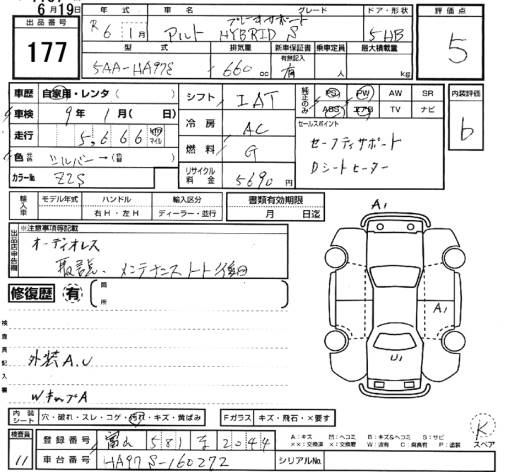 6月19日
出品番号 177
年式 R6年1月
車名 アルト
グレード ブレーキサポート HYBRID S
ドア・形状 5HB
評価点 5
型式 5AA-HA97S
排気量 660cc
新車保証書 有無記入 有
乗車定員 人
最大積載量 kg
車歴 自家用・レンタ( )
車検 9年1月( 日)
走行 5,666 km マイル
色 シルバー→( )
カラーNo. Z2S
シフト IAT
冷房 AC
燃料 G
リサイクル料金 5690円
純正のみ PS PW AW SR
ABS エアB TV ナビ
セールスポイント
セーフティサポート
Dシートヒーター
内装評価 b
輸入車 モデル年式 ハンドル 右H・左H 輸入区分 ディーラー・並行
書類有効期限 月 日迄
出品店申告欄 ※注意事項等記載
オーディオレス
取説、メンテナンスノート後日
修復歴 有 箇所
検査員記入欄
外装A.U
WキャップA
A1
A1
U1
内装シート 穴・破れ・スレ・コゲ・汚れ・キズ・黄ばみ
Fガラス キズ・飛石・×要す
K スペア
検査員 11
登録番号 富山 581 2044
車台番号 HA97S-160272
シリアルNo.
A:キズ U:ヘコミ B:キズ&ヘコミ S:サビ
××:交換済 ×:要交換 W:波 C:腐食 P:塗装